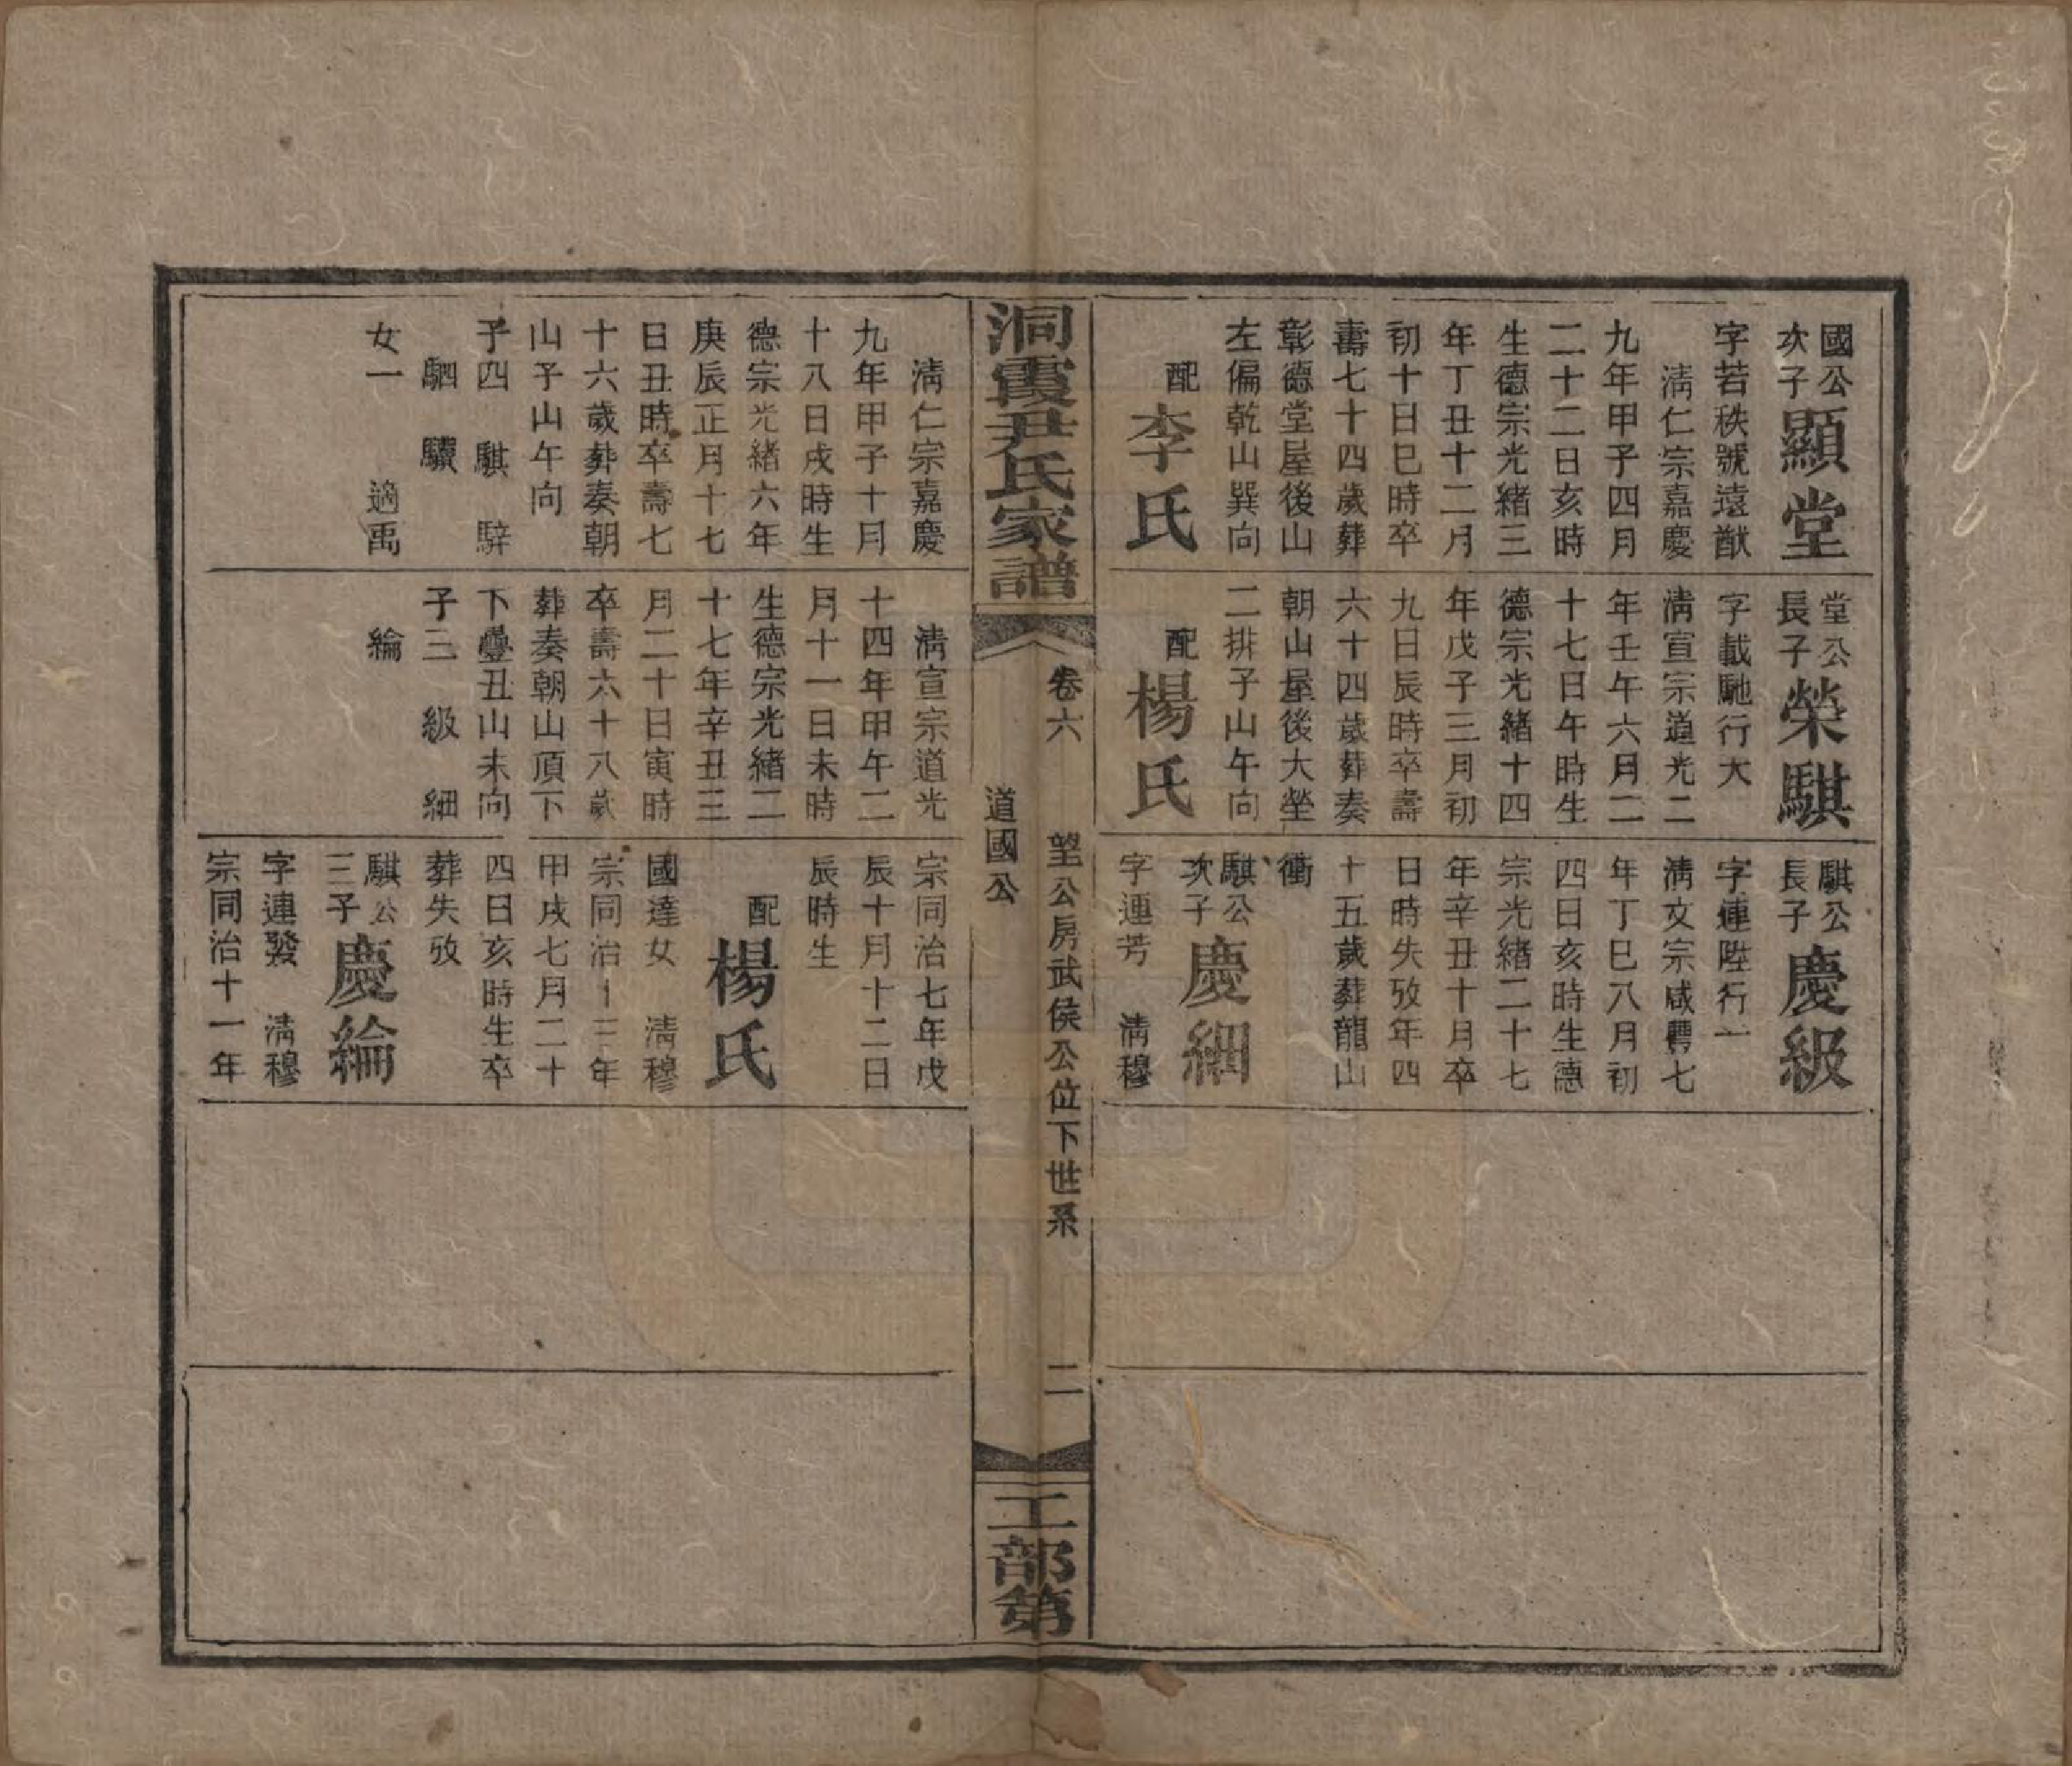 國公
次子
顯堂
字若秩號遠猷
清仁宗嘉慶
九年甲子四月
二十二日亥時
生德宗光緒三
年丁丑十二月
初十日巳時卒
壽七十四歲葬
彰德堂屋後山
左偏乾山巽向
配
李氏
堂公
長子
榮騏
字載馳行大
清宣宗道光二
年壬午六月二
十七日午時生
德宗光緒十四
年戊子三月初
九日辰時卒壽
六十四歲葬奏
朝山屋後大塋
二排子山午向
配
楊氏
騏公
長子
慶級
字連陞行一
清文宗咸豐七
年丁巳八月初
四日亥時生德
宗光緒二十七
年辛丑十月卒
日時失攷年四
十五歲葬龍山
衝
騏公
次子
慶細
字連芳 清穆
洞霞尹氏家譜
卷六 望公房武侯公位下世系 二
道國公
工部第
清仁宗嘉慶
九年甲子十月
十八日戌時生
德宗光緒六年
庚辰正月十七
日丑時卒壽七
十六歲葬奏朝
山子山午向
子四 騏 騂
駟 驥
女一 適禹
清宣宗道光
十四年甲午二
月十一日未時
生德宗光緒二
十七年辛丑三
月二十日寅時
卒壽六十八歲
葬奏朝山頂下
下壘丑山未向
子三 級 細
綸
宗同治七年戊
辰十月十二日
辰時生
配
楊氏
國達女 清穆
宗同治十三年
甲戌七月二十
四日亥時生卒
葬失攷
騏公
三子
慶綸
字連發 清穆
宗同治十一年